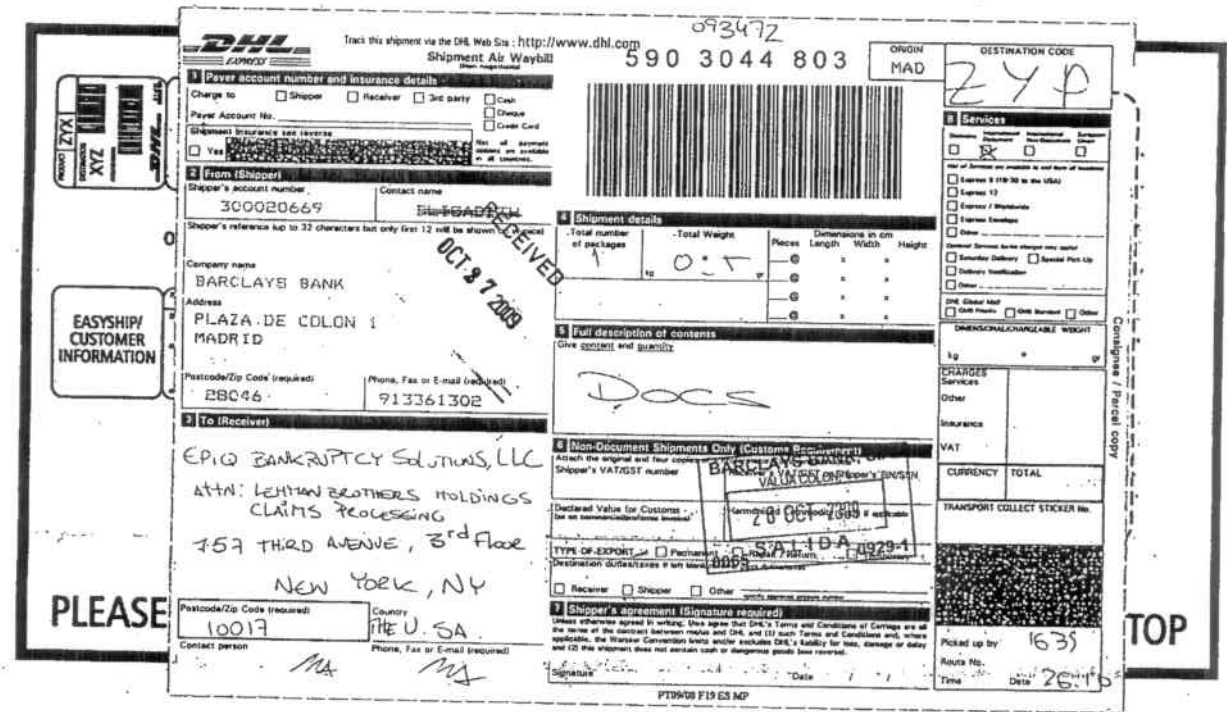 093472
DHL
EXPRESS
Track this shipment via the DHL Web Site : http://www.dhl.com
Shipment Air Waybill
(Non negotiable)
590 3044 803
ORIGIN
MAD
DESTINATION CODE
ZYP
1 Payer account number and insurance details
Charge to Shipper Receiver 3rd party Cash
Cheque
Credit Card
Payer Account No.
Shipment Insurance see reverse
Yes
Not all payment options are available in all countries.
2 From (Shipper)
Shipper's account number
300020669
Contact name
Shipper's reference (up to 32 characters but only first 12 will be shown
RECEIVED
OCT 27 2009
Company name
BARCLAYS BANK
Address
PLAZA DE COLON 1
MADRID
Postcode/Zip Code (required)
28046
Phone, Fax or E-mail (required)
913361302
3 To (Receiver)
EPIQ BANKRUPTCY SOLUTIONS, LLC
ATTN: LEHMAN BROTHERS HOLDINGS
CLAIMS PROCESSING
757 THIRD AVENUE, 3rd Floor
NEW YORK, NY
Postcode/Zip Code (required)
10017
Country
THE U.SA.
Contact person
Phone, Fax or E-mail (required)
4 Shipment details
Total number of packages
1
Total Weight
kg gr
Dimensions in cm
Pieces Length Width Height
5 Full description of contents
Give content and quantity
DOCS
6 Non-Document Shipments Only (Customs Requirement)
Attach the original and four copies of
Shipper's VAT/GST number
Receiver's VAT/GST or Shipper's EIN/SSN
BARCLAYS BANK
VALUA COLON
20 OCT 2009
SALIDA
0065
0929-1
Declared Value for Customs
Harmonised Commodity if applicable
TYPE OF EXPORT Permanent Repair / Return Temporary
Destination duties/taxes if left blank
Receiver Shipper Other
7 Shipper's agreement (Signature required)
Unless otherwise agreed in writing, I/we agree that DHL's Terms and Conditions of Carriage are all
the terms of the contract between me/us and DHL and (1) such Terms and Conditions and, where
applicable, the Warsaw Convention limits and/or excludes DHL's liability for loss, damage or delay
and (2) this shipment does not contain cash or dangerous goods (see reverse).
Signature Date / /
PT09/08 F19 ES MP
8 Services
Domestic International Document International Non-Document European Union
Express 9 (10:30 to the USA)
Express 12
Express / Worldwide
Express Envelope
Other
Optional Services (extra charges may apply)
Saturday Delivery Special Pick-Up
Delivery Notification
Other
DHL Global Mail
GMB Priority GMB Standard Other
DIMENSIONAL/CHARGEABLE WEIGHT
kg gr
CHARGES
Services
Other
Insurance
VAT
CURRENCY TOTAL
TRANSPORT COLLECT STICKER No.
Picked up by 1635
Route No.
Time Date
Consignee / Parcel copy
EASYSHIP/
CUSTOMER
INFORMATION
ZYX
XYZ
DHL
PLEASE
TOP